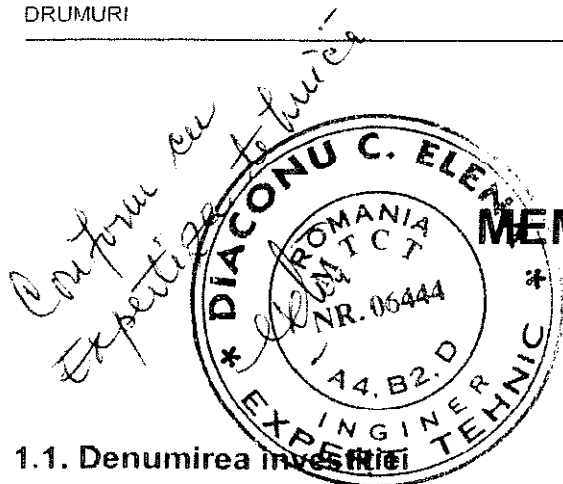 DRUMURI
Conform cu
Expertiza tehnică
* DIACONU C. ELENA *
EXPERT TEHNIC
ROMANIA
MTCT
NR. 06444
A4, B2, D
INGINER
MEM
1.1. Denumirea investitiei